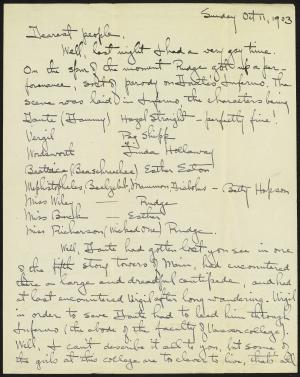 Sunday Oct 11, 1903
Dearest people,
Well, last night I had a very gay time.
On the spur of the moment Pudge got up a per-
formance, sort of parody on Dante's Inferno. The
scene was laid in Inferno, the characters being
Dante (Dummy) Hazel Straight – perfectly fine!
Vergil Peg Shipp
Wordsworth Linda Holloway
Beatrice Esther Eston
Mephistopheles Beelzebub Mammon Diabolus – Betty Hopson
Miss Wiley – Pudge
Miss – Esther
Miss Richardson (Wicked One) Pudge.
Well, Dante had gotten lost you see in one
of the fifth story towers of Main, had encountered
there a large and dreadful centipede, and had
at last encountered Virgil after long wandering. Virgil
in order to save Dante had to lead him through
Inferno (the abode of the faculty of Vassar College).
Well, I can't describe it all to you, but some of
the girls at this college are to clever to live, that's all